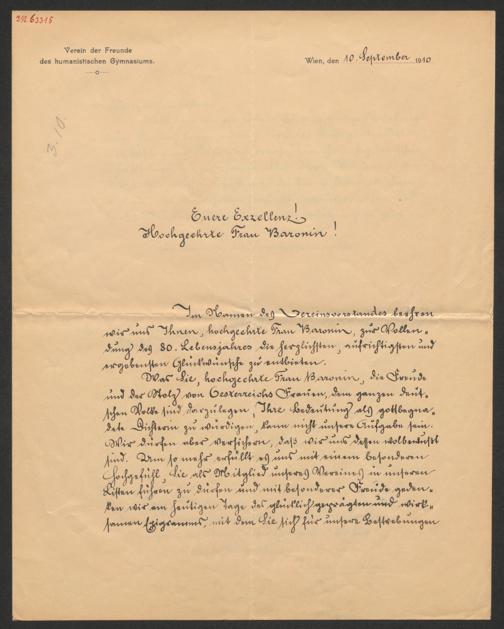 Verein der Freunde
des humanistischen Gymnasiums.
Wien, den 10. September 1910
3.10.
Euere Exzellenz!
Hochgeehrte Frau Baronin!
Im Namen des Vereinsvorstandes beehren
wir uns Ihnen, hochgeehrte Frau Baronin, zur Vollen-
dung des 80. Lebensjahres die herzlichsten, aufrichtigsten und
ergebensten Glückwünsche zu entbieten.
Was Sie, hochgeehrte Frau Baronin, die Freude
und der Stolz von Oesterreichs Frauen, dem ganzen deut-
schen Volke sind darzulegen, Ihre Bedeutung als gottbegna-
dete Dichterin zu würdigen, kann nicht unsere Aufgabe sein.
Wir dürfen aber versichern, daß wir uns dessen wohlbewußt
sind. Um so mehr erfüllt es uns mit einem besonderen
Hochgefühl, Sie als Mitglied unseres Vereines in unseren
Listen führen zu dürfen und mit besonderer Freude geden-
ken wir am heutigen Tage des glücklich geprägten und wirk-
samen Epigrammes, mit dem Sie sich für unsere Bestrebungen